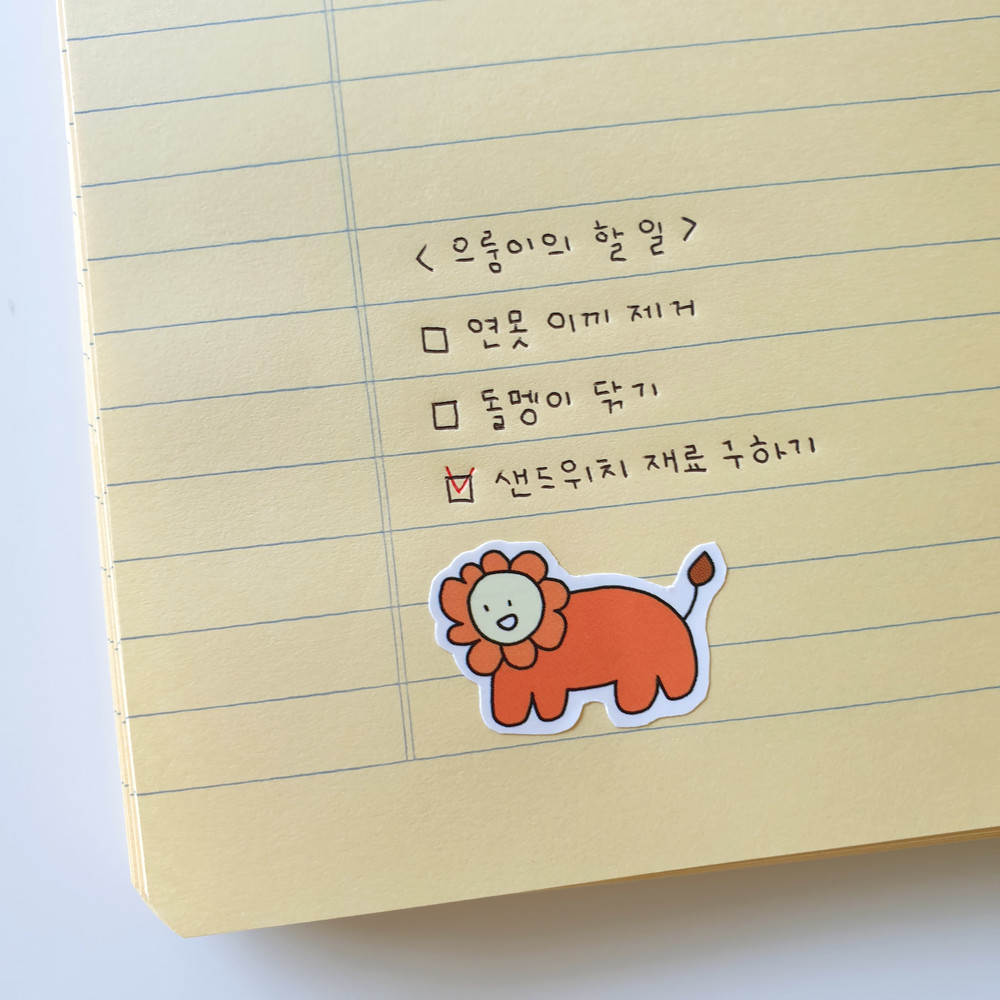 < 으룽이의 할 일 >
□ 연못 이끼 제거
□ 돌멩이 닦기
☑ 샌드위치 재료 구하기